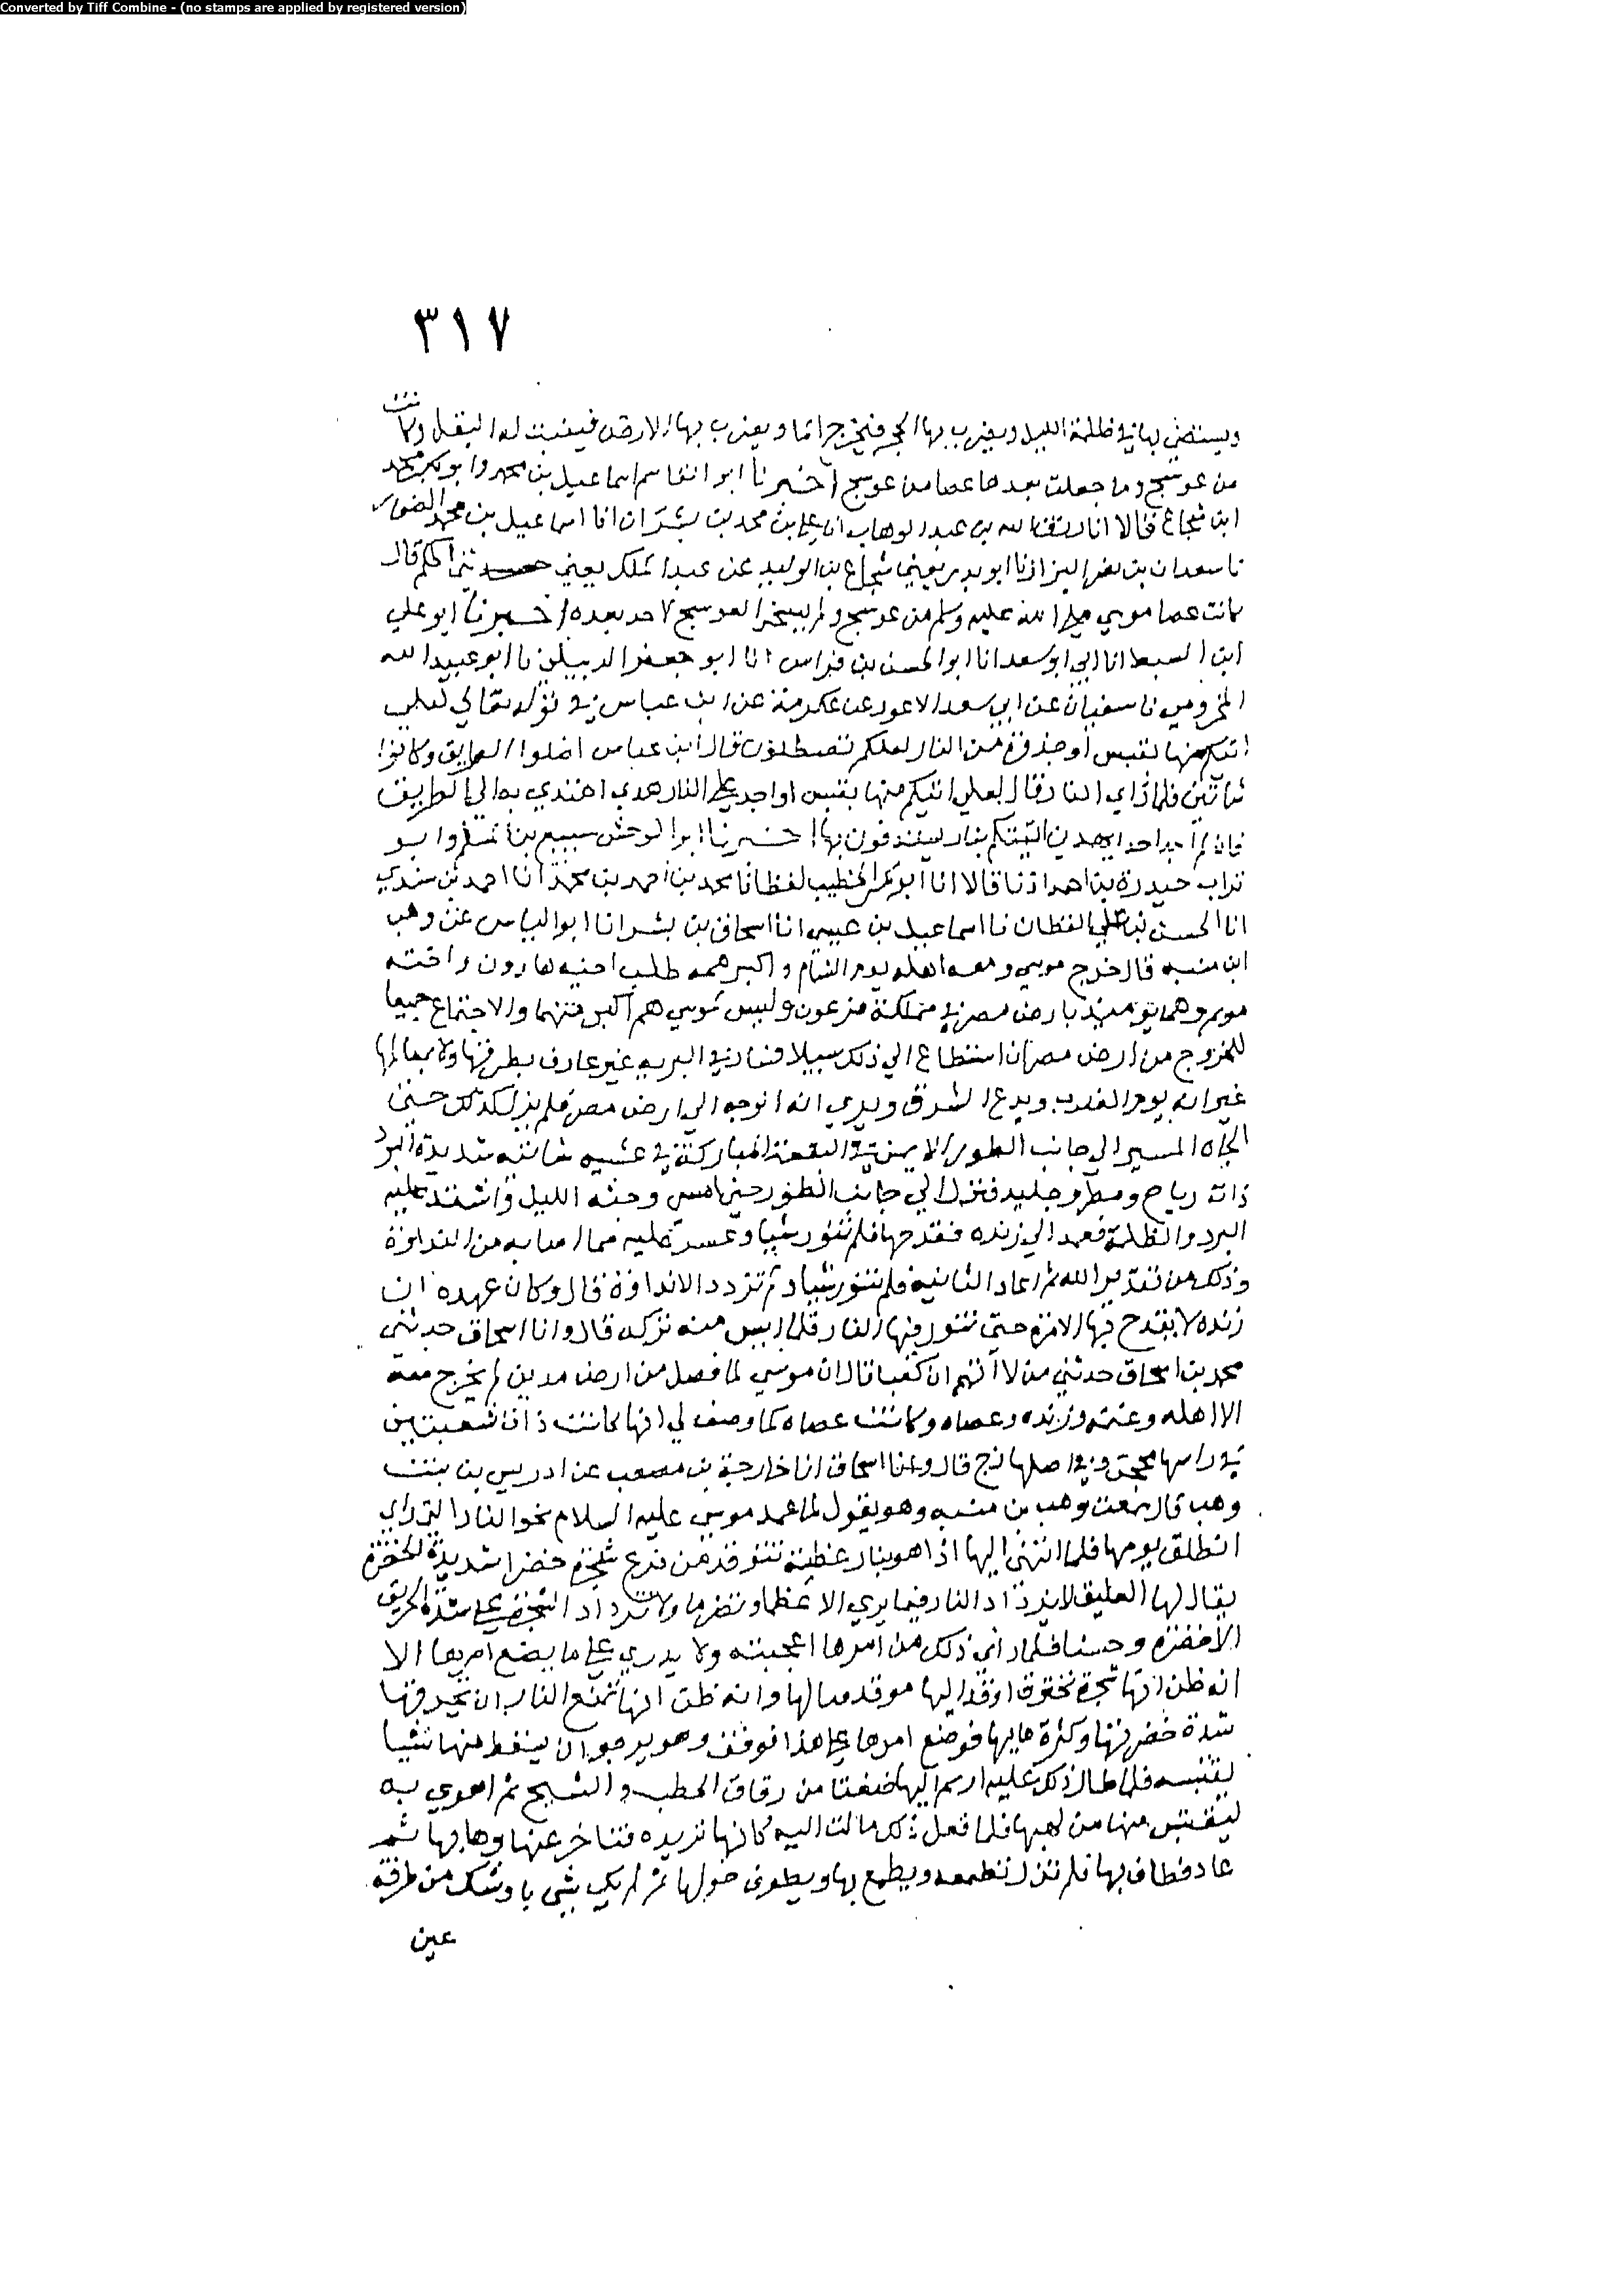 Converted by Tiff Combine - (no stamps are applied by registered version)
٣١٧
ويستضي بها في ظلمة الليل ويضرب بها الحجر فيخرج ماء ويضرب بها الارض فينبت له البقل وكانت
من عوسج وما جعلت بعدها عصا من عوسج اخبرنا ابو القاسم اسماعيل بن محمد وابو بكر محمد
ابن شجاع قالا انا رزق الله بن عبد الوهاب انا علي بن محمد بن بشران انا اسماعيل بن محمد الصفار
نا سعدان بن نصر البزاز نا ابو بدر يعني شجاع بن الوليد عن عبد الملك يعني عن الحكم قال
كانت عصا موسي صلى الله عليه وسلم من عوسج ولم يسخر العوسج لاحد بعده اخبرنا ابو علي
ابن السبط انا ابي ابو سعد انا ابو الحسن بن فراس انا ابو جعفر الديبلي نا ابو عبيد الله
المخزومي نا سفيان عن ابي سعد الاعور عن عكرمة عن ابن عباس في قوله تعالي لعلي
اتيكم منها بقبس او جذوة من النار لعلكم تصطلون قال ابن عباس اضلوا الطريق وكانوا
شاتين فلما راي النار قال لعلي اتيكم منها بقبس او اجد على النار هدي اهتدي به الي الطريق
فان لم اجد احدا يهدين اتيتكم بنار تستدفون بها اخبرنا ابو الوحش سبيع بن المسلم وابو
تراب حيدرة بن احمد اذنا قالا انا ابو بكر الخطيب لفظا نا محمد بن احمد بن محمد انا احمد بن سندي
انا الحسن بن علي القطان نا اسماعيل بن عيسي انا اسحاق بن بشر انا ابو الياس عن وهب
ابن منبه قال خرج موسي ومعه اهله يوم الشام واكبر همه طلب اخيه هارون واخته
مريم وهما يومئذ بارض مصر في مملكة فرعون وليس لموسي هم اكبر منهما والاجتماع جميعا
للخروج من ارض مصر ان استطاع الي ذلك سبيلا فسار في البريه غير عارف بطرقها ولا معالمها
غير انه يوم الغرب ويدع الشرق ويري انه توجه الي ارض مصر فلم يزل كذلك حتي
الجاه المسير الي جانب الطور الايمن في البقعة المباركة في عشيه شاتيه شديدة البرد
ذات رياح ومطر وجليد فنزل الي جانب الطور حين امسي وجنه الليل واشتد عليه
البرد والظلمة فعمد الي زنده فقدحها فلم تنور شيا وعسر عليه مما اصابه من النداوة
وذلك من تقدير الله ثم اعاد الثانية فلم تنور شيا ولم تزدد الا نداوة قال وكان عهده ان
زنده لا يقدح فيها الا مرة حتي تنور فيها النار فلما ايس منه تركه قال وانا اسحاق حدثني
محمد بن اسحاق حدثني من لا اتهم ان كعبا قال ان موسي لما فصل من ارض مدين لم يخرج معه
الا اهله وغنمه وزنده وعصاه وكانت عصاه كما وصف لي انها كانت ذات شعبتين
في راسها محجن وفي اصلها زج قال وانا اسحاق انا خارجة بن مصعب عن ادريس بن بنت
وهب قال سمعت وهب بن منبه وهو يقول لما عمد موسي عليه السلام نحو النار التي راي
انطلق يومها فلما انتهى اليها اذا هو بنار عظيمة تتوقد من فرع شجرة خضرا شديدة الخضرة
يقال لها العليق لا يزداد النار فيما يري الا عظما وتضرما ولا تزداد الشجرة على شدة الحريق
الا خضرة وحسنا فلما راي ذلك من امرها اعجبته ولا يدري على ما يضع امرها الا
انه ظن انها شجرة تحترق اوقد اليها موقد فنالها وانه ظن انها تمنع النار ان تحرقها
شدة خضرتها وكثرة مايها فوضع امرها على هذا فوقف وهو يرجو ان يسقط منها شيا
يقتبسه فلما طال ذلك عليه اهوي اليها ضغثا من رقاق الحطب والشيح ثم اهوي به
ليقتبس منها من لهبها فلما فعل ذلك مالت اليه كانها تريده فتاخر عنها وهابها ثم
عاد فطاف بها فلم تزل تطمعه ويطمع بها ويطوف حولها ثم لم يكن بشي باوشك من طرفة
عين